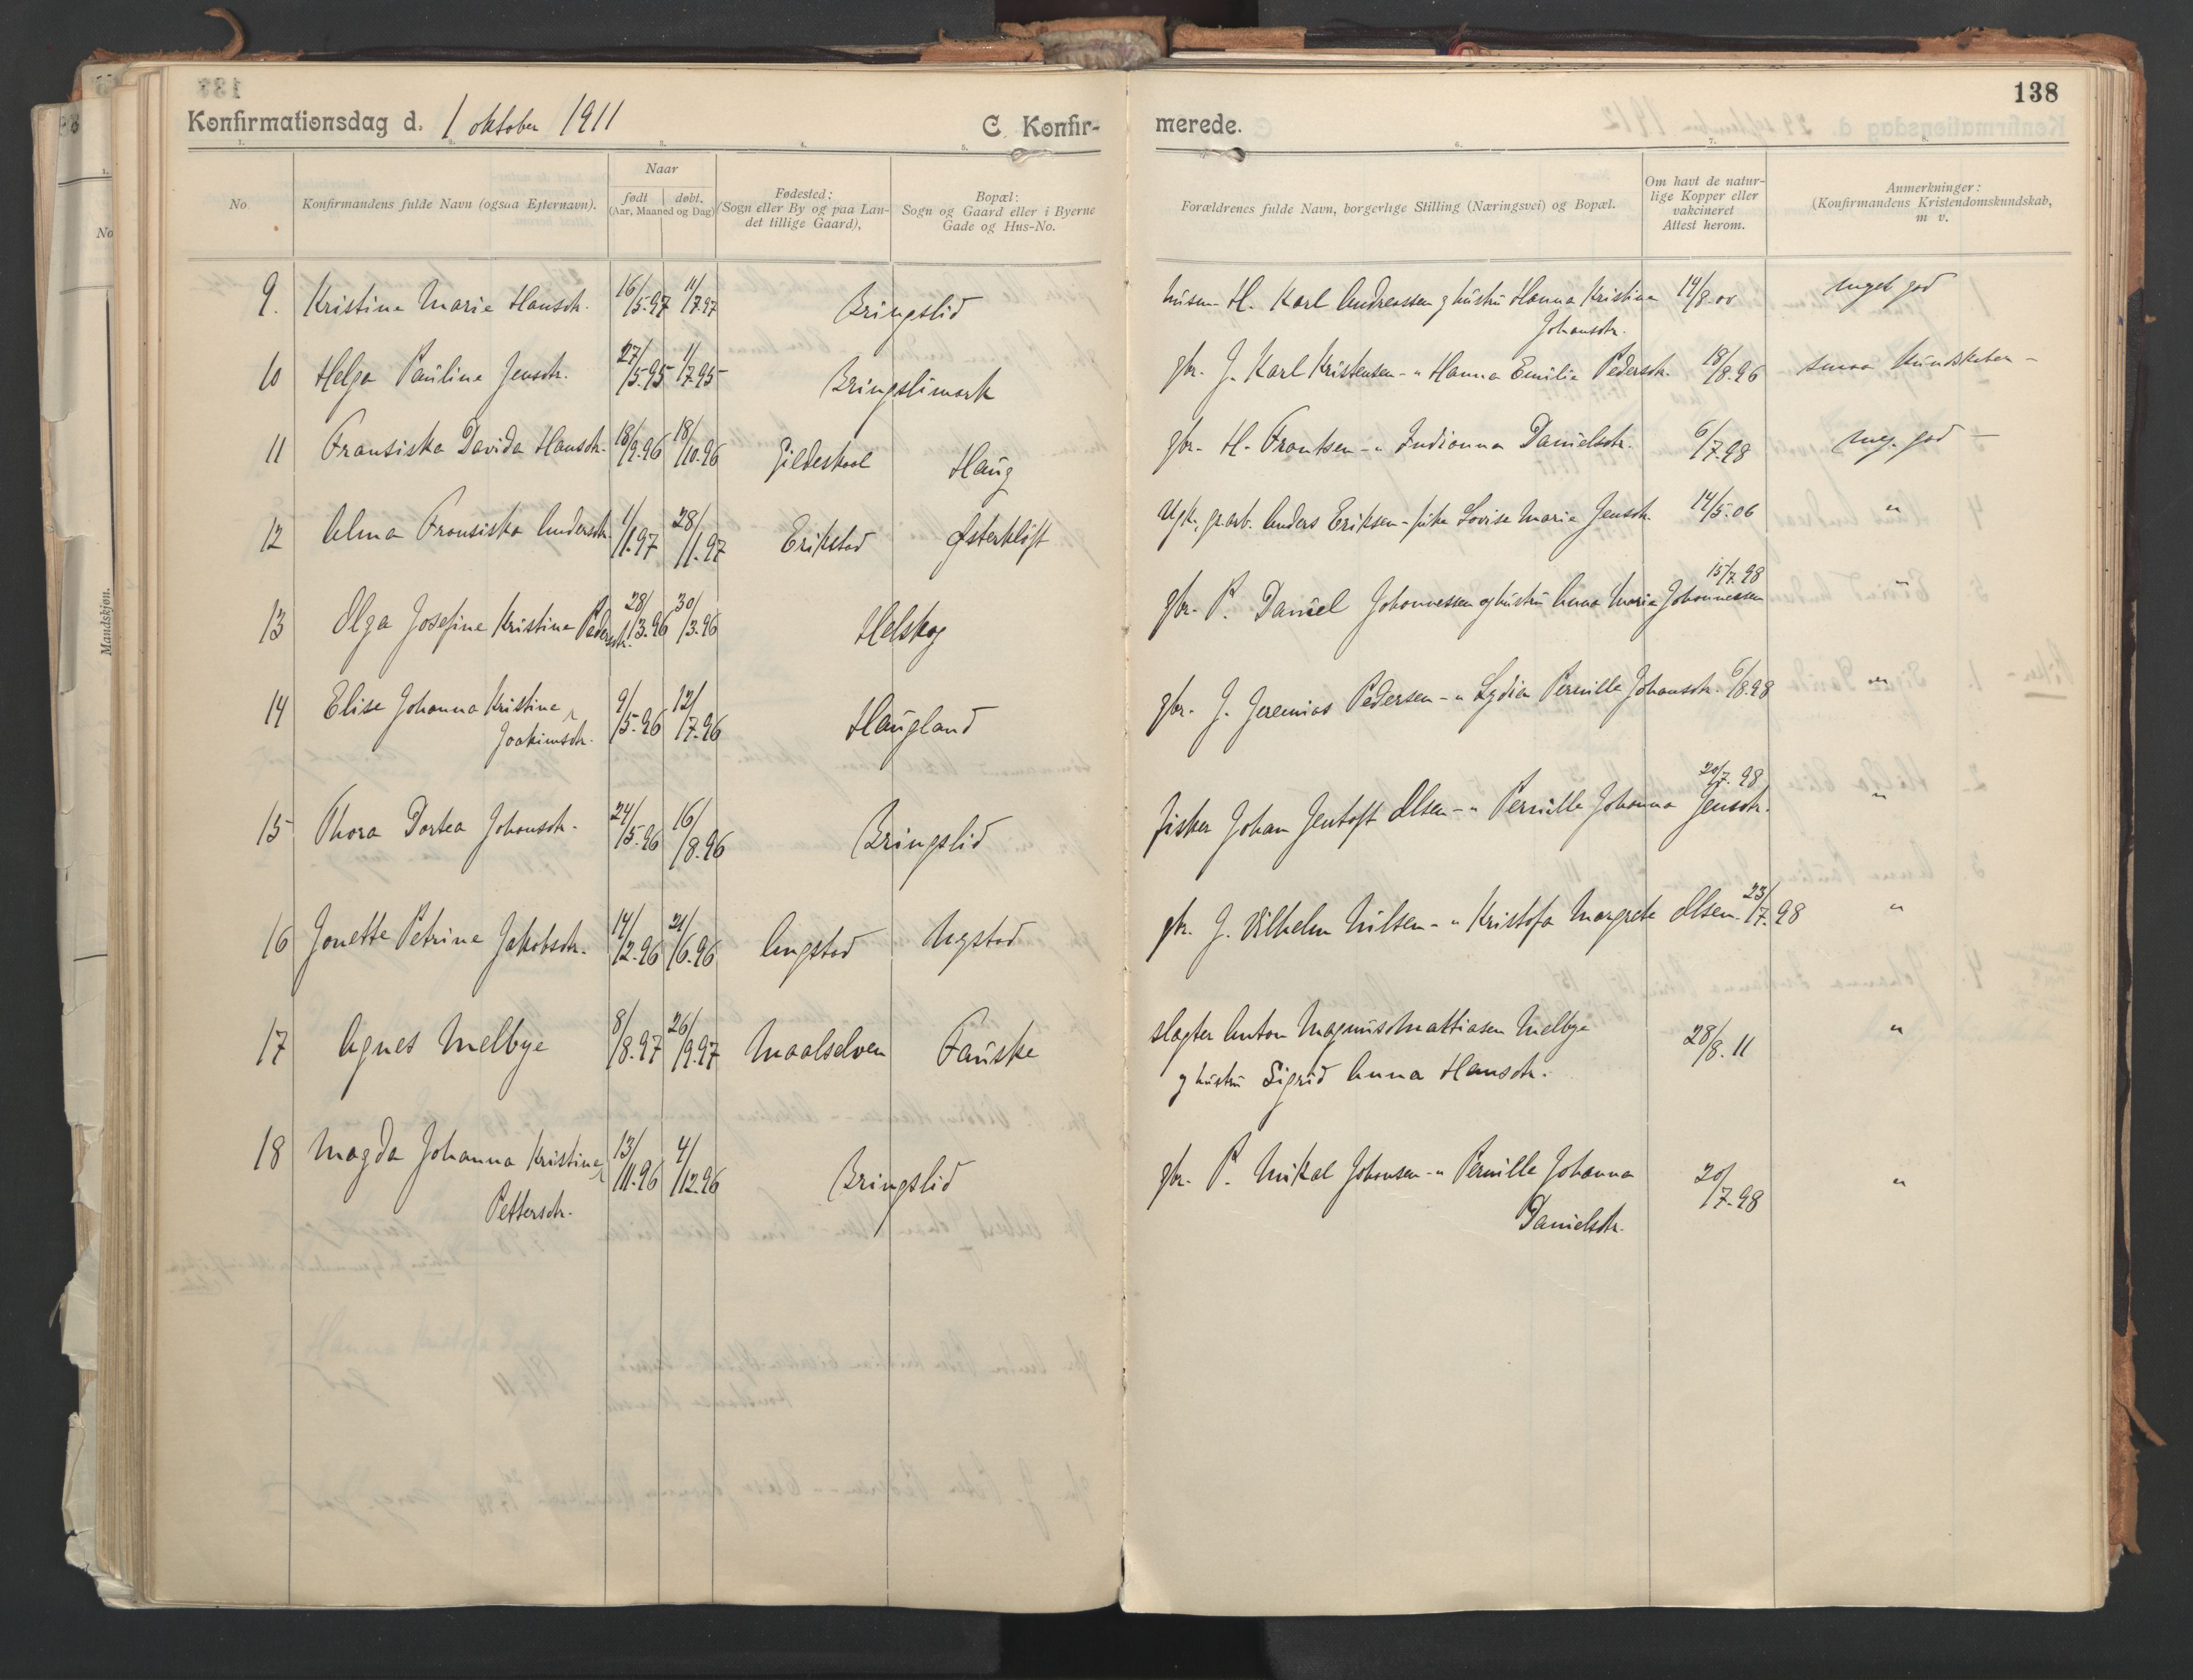 138
Konfirmationsdag d. 1 oktober 1911 C. Konfirmerede.
1. 2. 3. 4. 5. 6. 7. 8.
No. Konfirmandens fulde Navn (ogsaa Efternavn). Naar født døbt. (Aar, Maaned og Dag) Fødested: (Sogn eller By og paa Landet tillige Gaard), Bopæl: Sogn og Gaard eller i Byerne Gade og Hus-No. Forældrenes fulde Navn, borgerlige Stilling (Næringsvei) og Bopæl. Om havt de naturlige Kopper eller vakcineret Attest herom. Anmerkninger: (Konfirmandens Kristendomskundskab, m. v.
9. Kristine Marie Hansdtr. 16/5.97 11/7.97 Bringslid husm. H. Karl Andreassen g hustru Hanna Kristine Johansdtr. 14/8.00 meget god
10 Helga Pauline Jensdtr. 27/5.95 1/7.95 Bringslimark gbr. J. Karl Kristensen - " Hanna Emilie Pedersdtr. 18/8.96 smaa kundskaber -
11 Fransiska Davida Hansdtr. 18/9.96 18/10.96 Gildeskaal Haug gbr. H. Frantsen - " Indianna Danielsdtr. 6/7.98 meg. god -
12 Alma Fransiska Andersdtr. 1/1.97 28/11.97 Erikstad Østerkløft Ugk. gr.arb. Anders Eriksen - pike Lovise Marie Jensdtr. 14/5.06 "
13 Olga Josefine Kristine Pedersdtr. 28/13.96 30/3.96 Helskog gbr. P. Daniel Johannessen og hustru Anna Marie Johannessen 15/7.98 "
14 Elise Johanna Kristine Joakimsdtr. 9/5.96 12/7.96 Haugland gbr. J. Jeremias Pedersen - " Lydia Pernille Johansdtr. 6/8.98 "
15 Thora Dortea Johansdtr. 24/5.96 16/8.96 Bringslid fisker Johan Jentoft Olsen - " Pernille Johanna Jensdtr. 20/7.98 "
16 Jonette Petrine Jakobsdtr. 14/2.96 21/6.96 Angstad Nystad gbr. J. Vilhelm Nilsen - " Kristofa Margrete Olsen 23/7.98 "
17 Agnes Melbye 8/8.97 26/9.97 Maalselven Fauske slagter Anton Magnus Mattiasen Melbye g hustru Sigrid Anna Hansdtr. 28/8.11 "
18 Magda Johanna Kristine Pettersdtr. 13/11.96 4/12.96 Bringslid gbr. P. Mikal Johansen - " Pernille Johanna Danielsdtr. 20/7.98 "
No
Mandskjøn.